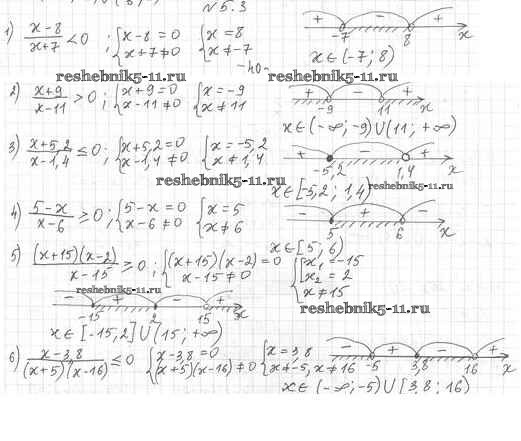 № 5.3
1) (x-8)/(x+7) < 0 ; { x-8 = 0 { x = 8
x+7 ≠ 0 x ≠ -7
+ - +
-7 8 x
x ∈ (-7; 8)
reshebnik5-11.ru
2) (x+9)/(x-11) > 0 ; { x+9 = 0 { x = -9
x-11 ≠ 0 x ≠ 11
+ - +
-9 11 x
x ∈ (-∞; -9) ∪ (11; +∞)
3) (x+5,2)/(x-1,4) ≤ 0 ; { x+5,2 = 0 { x = -5,2
x-1,4 ≠ 0 x ≠ 1,4
+ - +
-5,2 1,4 x
reshebnik5-11.ru
x ∈ [-5,2 ; 1,4)
reshebnik5-11.ru
4) (5-x)/(x-6) ≥ 0 ; { 5-x = 0 { x = 5
x-6 ≠ 0 x ≠ 6
- + -
5 6 x
x ∈ [5; 6)
5) ((x+15)(x-2))/(x-15) ≥ 0 ; { (x+15)(x-2) = 0 { x₁ = -15
x-15 ≠ 0 x₂ = 2
x ≠ 15
reshebnik5-11.ru
- + - +
-15 2 15 x
reshebnik5-11.ru
x ∈ [-15, 2] ∪ (15; +∞)
6) (x-3,8)/((x+5)(x-16)) ≤ 0 { x-3,8 = 0 { x = 3,8
(x+5)(x-16) ≠ 0 x ≠ -5, x ≠ 16
- + - +
-5 3,8 16 x
x ∈ (-∞; -5) ∪ [3,8 ; 16)